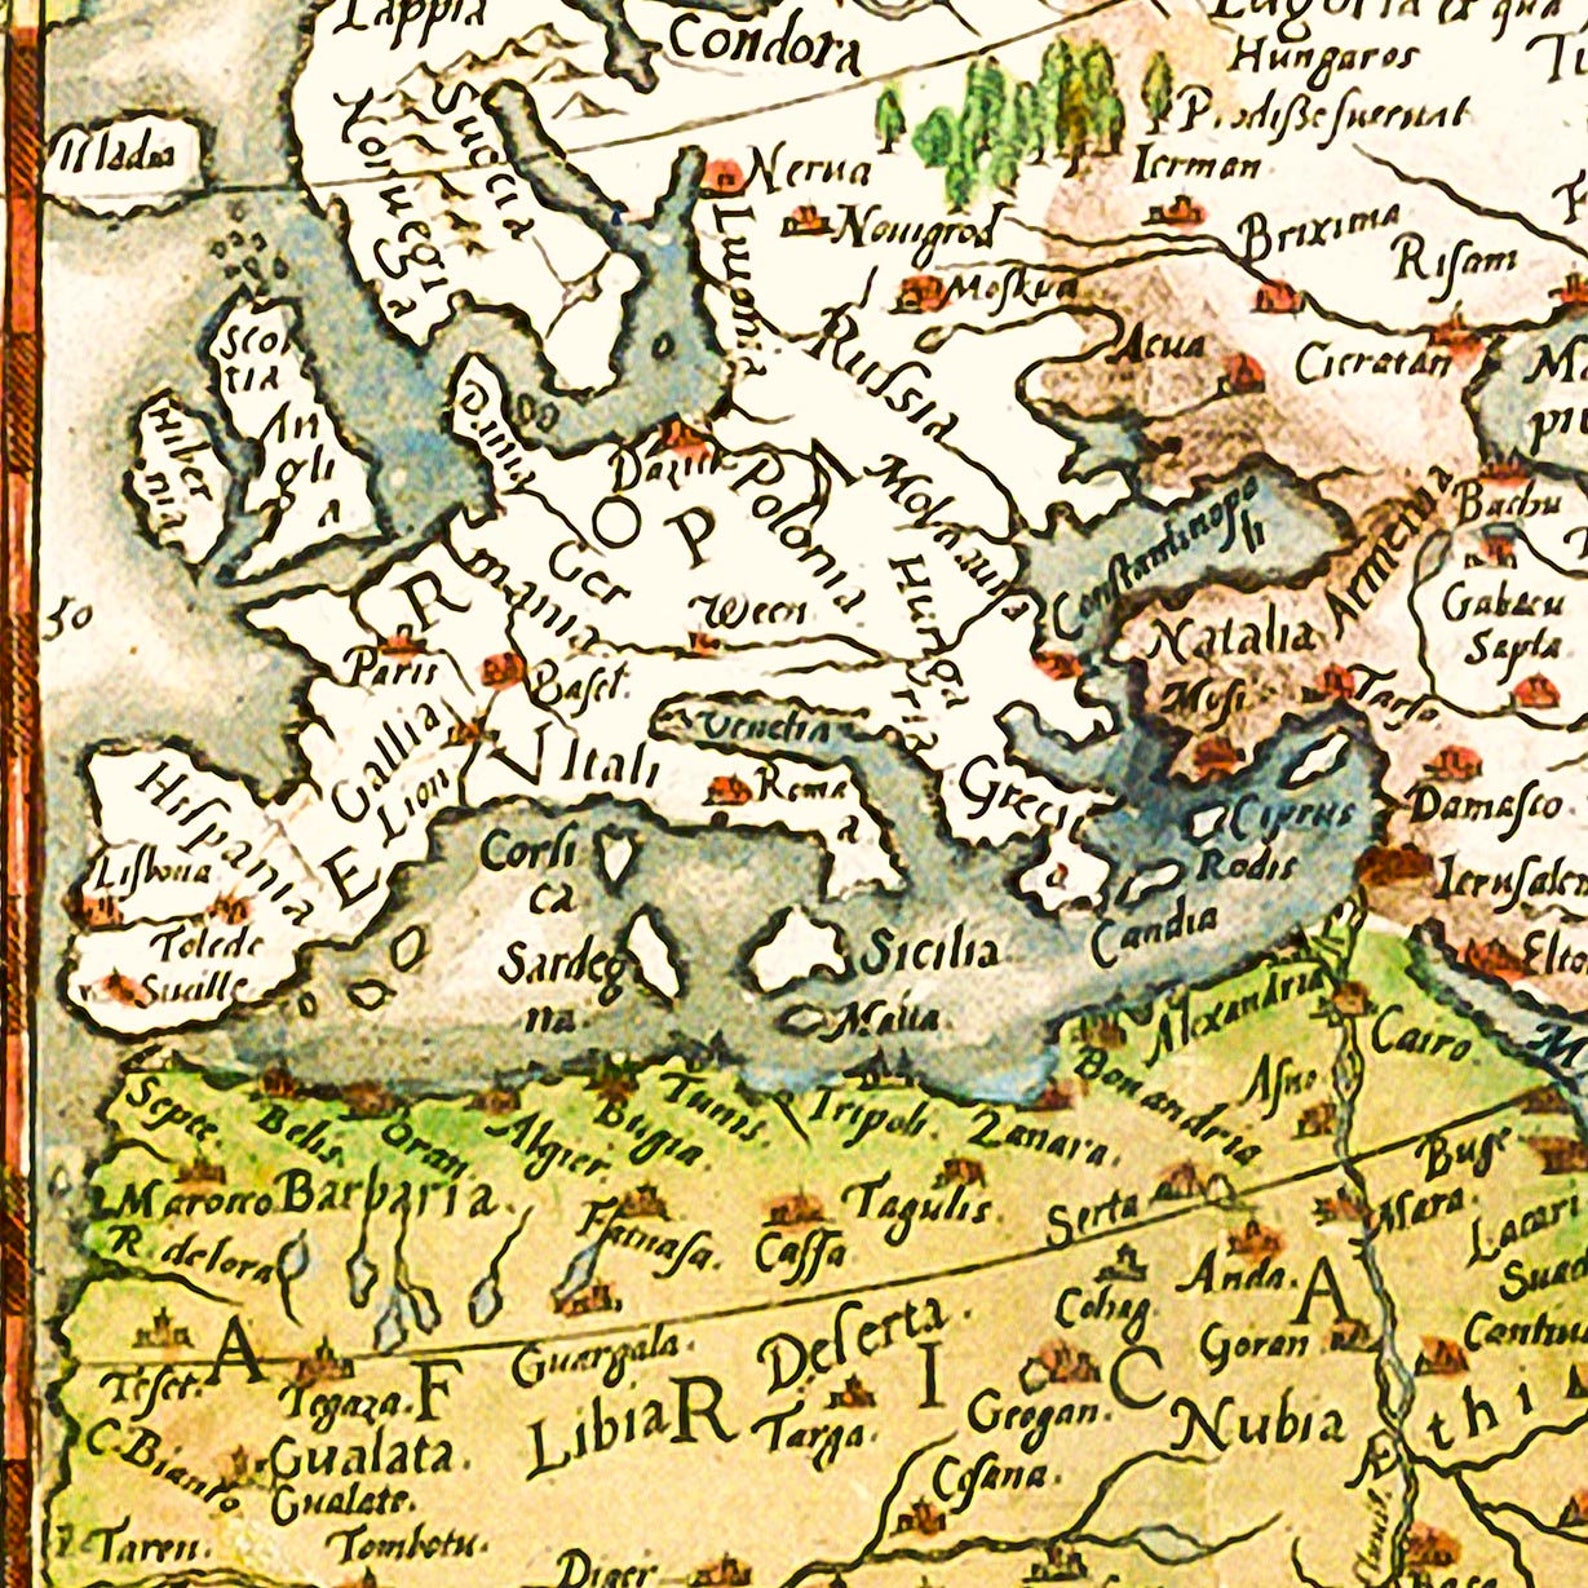 Lappia
Condora
Iugoria ex qua
Hungaros
Prodisse fuerunt
Illadia
Noruegia
Suecia
Nerua
Ierman
Nouigrod
Brixima
Risam
Liuonia
Moskua
Scotia
Russia
Acua
Cieratan
Hibernia
Anglia
Dania
Dazick
Polonia
Moldauia
Constantinopoli
Armenia
Bachu
EVROPA
Germania
Hungaria
50
Ween
Gabacu
Sapta
Natalia
Paris
Basel
Musi
Tarso
Gallia
Venetia
Lion
Itali
Roma
Grecia
Hispania
Ciprus
Damasco
Lisbona
Corsica
Rodis
Ierusalem
Candia
Toledo
Siuille
Sardegna
Sicilia
Malta
Elto
Alexandria
Cairo
Septe
Belis
Oran
Algier
Bugia
Tunis
Tripoli
Zanara
Bonandria
Asno
Buge
Marocco
Barbaria
Fatnasa
Cassa
Tagulis
Serta
Mara
R. delora
Anda
Lacari
Suac
Cohag
Goran
Teset
Guargala
Deserta
AFRICA
Tegaza
Libia
Targa
Geogan
Nubia
C. Bianco
Gualata
Gualate
Cosana
Taren
Tombotu
Diger
thi